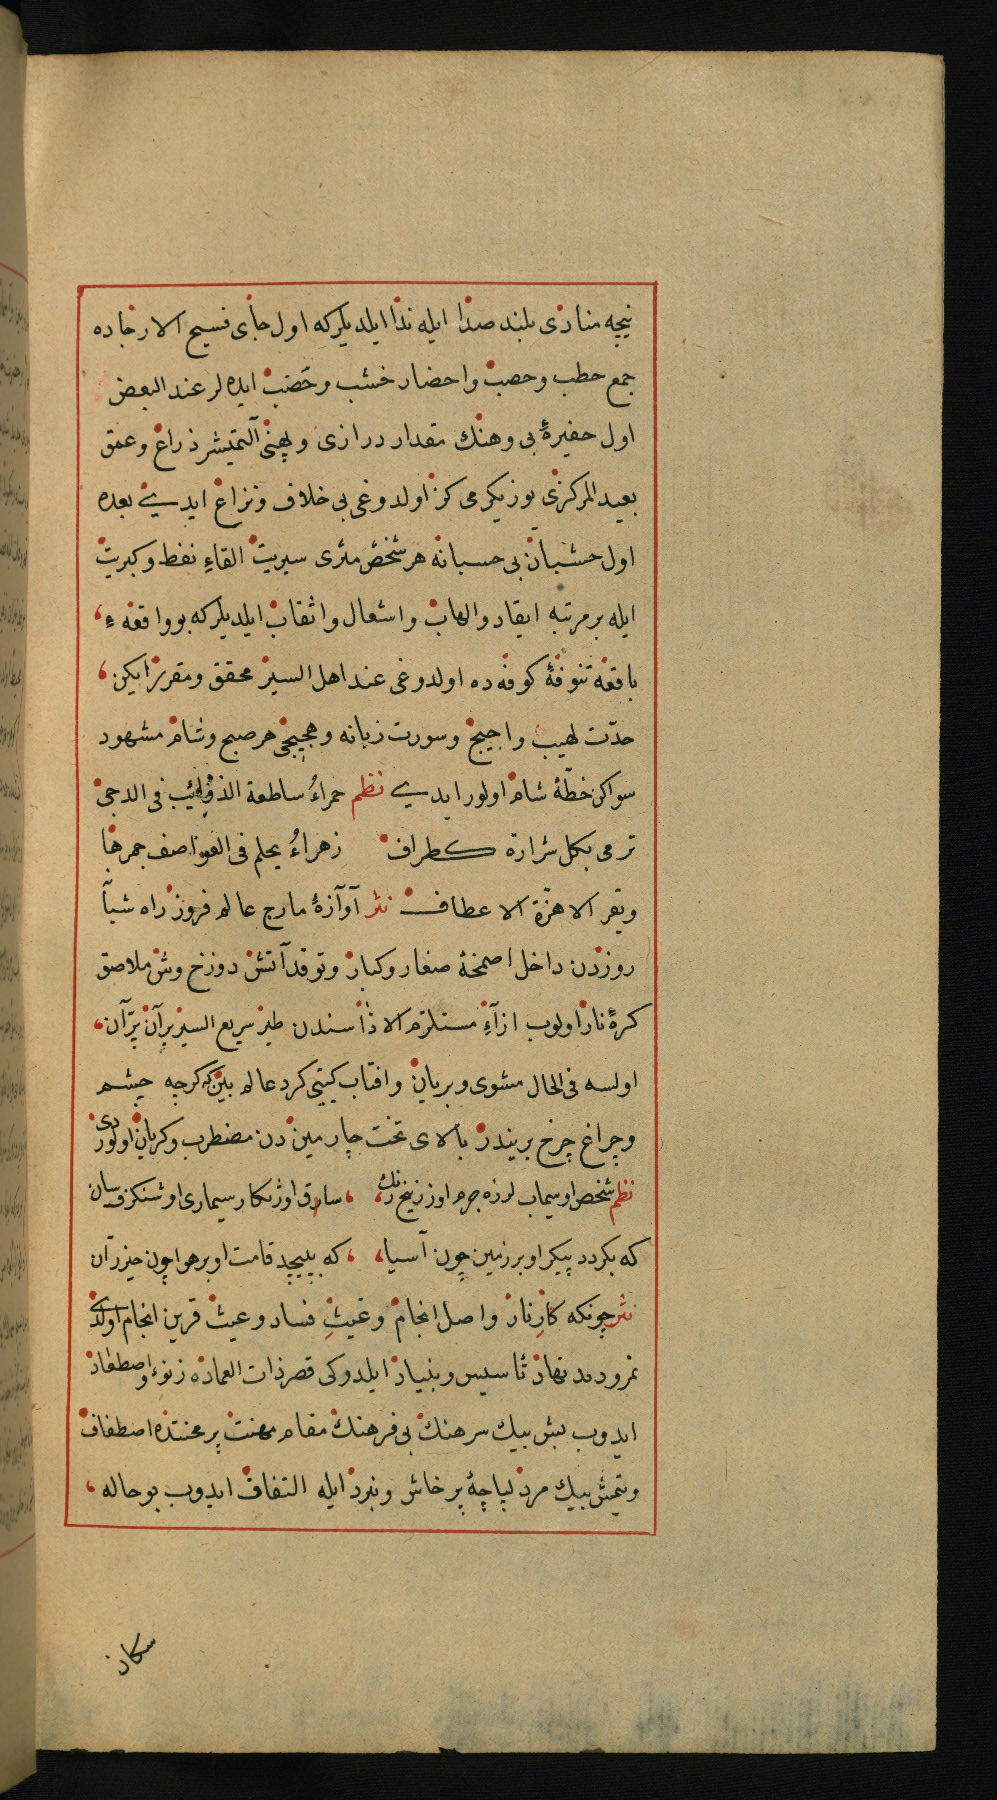 نیچه منادی بلند صدا ایله ندا ایلدیلر که اول جای فسیح الارجاده
جمع حطب و حصب و احضار خشب و خضب ایده لر عند البعض
اول حفیرهٔ بی وهنك مقدار درازی و پهنی آلتمشر ذراع و عمق
بعید المرکزی یوز یکرمی کز اولدوغی بی خلاف و نزاع ایدی بعده
اول خشبان بی حسبانه هر شخص مئری سیریت القاءِ نفط و کبریت
ایله بر مرتبه ایقاد و الهاب و اشعال و اثقاب ایلدیلر که بو واقعه ء
باقعه تنوفهٔ کوفه ده اولدوغی عند اهل السیر محقق و مقرر ایکن
حدّت لهیب و اجیج و سورت زبانه و هجیجی هر صبح و شام مشهود
سواکن خطّهٔ شام اولور ایدی نظم حمراءُ ساطعة الذوائب فی الدجی
ترمی بکل شرارة کطراف زهراءُ یحلم فی جمرها
ویقر الا هزّة الاعطاف نثر آوازهٔ مارج عالم فروز راه شباّ
روزدن داخل اصمخهٔ صغار و کبار و توقد آتش دوزخ وش ملاصق
کرهٔ نار اولوب ازآءِ مستلزم الاذٰاسندن طیر سریع السیر برآن پرّآن
اولسه فی الحال مشوی و بریان و افتاب کیتی کرد عالم بین که کرچه چشم
و چراغ چرخ بریندر بالای تخت چارمین دن مضطرب و کریان اولوردی
نظم شخص او سیماب لرزه جرم او زرنیخ رنك سارق او زنکار سیماری او شنکرف سان
که بکردد پیکر او بر زمین چون آسیا که بپیچد قامت او بر هوا چون خیزرآن
نثر چونکه کارِ نار واصل انجام و غیثِ فساد و عیث قرین انجام اولدی
نمرود بد نهاد تأسیس و بنیاد ایلدوکی قصر ذات العماده زنوءِ و اصطفاد
ایدوب بش بیك سرهنك بی فرهنك مقام مهنت پر محنتده اصطفاف
و یتمش بیك مرد لپاچهٔ پرخاش و نبرد ایله التفاف ایدوب بو حاله
سکان